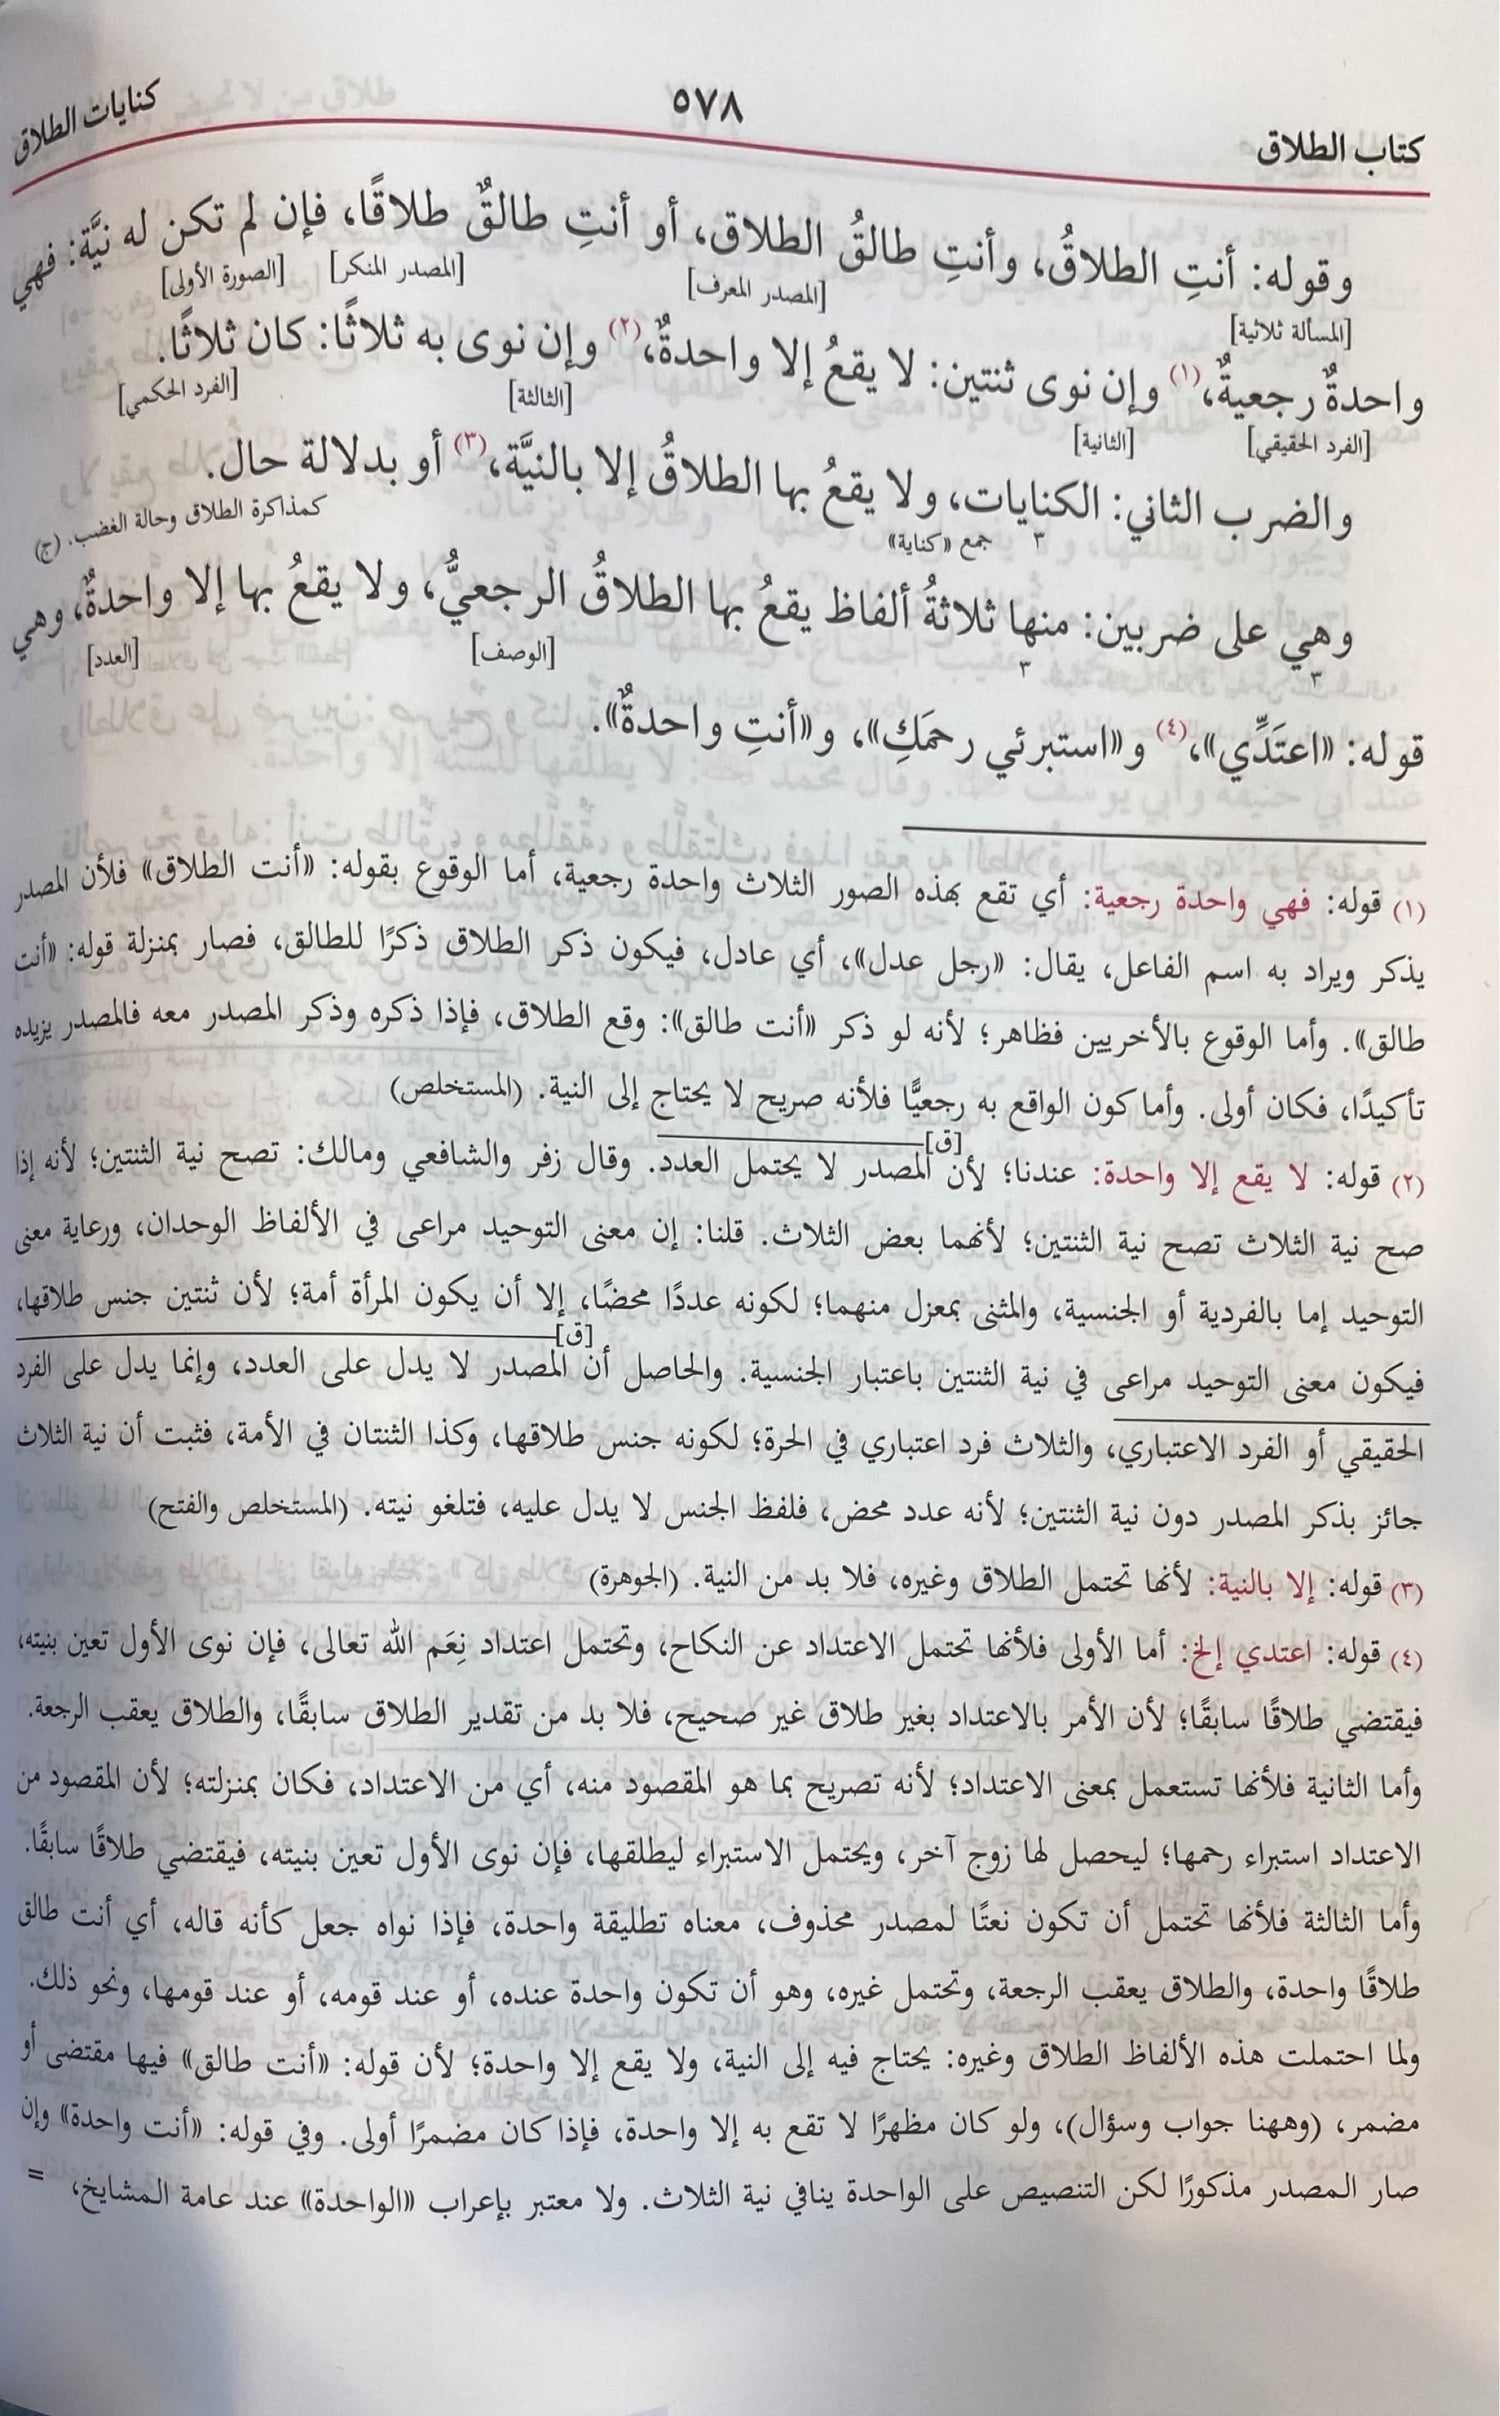 كتاب الطلاق ٥٧٨ كنايات الطلاق
وقوله: أنتِ الطلاقُ، وأنتِ طالقُ الطلاق، أو أنتِ طالقٌ طلاقًا، فإن لم تكن له نيَّة: فهي
[المسألة ثلاثية] [المصدر المعرف] [المصدر المنكر] [الصورة الأولى]
واحدةٌ رجعيةٌ،(١) وإن نوى ثنتين: لا يقعُ إلا واحدةٌ،(٢) وإن نوى به ثلاثًا: كان ثلاثًا.
[الفرد الحقيقي] [الثانية] [الثالثة] [الفرد الحكمي]
والضرب الثاني: الكنايات، ولا يقعُ بها الطلاقُ إلا بالنيَّة،(٣) أو بدلالة حال.
٣ جمع «كناية» كمذاكرة الطلاق وحالة الغضب. (ج)
وهي على ضربين: منها ثلاثةُ ألفاظ يقعُ بها الطلاقُ الرجعيُّ، ولا يقعُ بها إلا واحدةٌ، وهي
٣ ٣ [الوصف] [العدد]
قوله: «اعتَدِّي»،(٤) و«استبرئي رحمَكِ»، و«أنتِ واحدةٌ».
(١) قوله: فهي واحدة رجعية: أي تقع بهذه الصور الثلاث واحدة رجعية، أما الوقوع بقوله: «أنت الطلاق» فلأن المصدر
يذكر ويراد به اسم الفاعل، يقال: «رجل عدل»، أي عادل، فيكون ذكر الطلاق ذكرًا للطالق، فصار بمنزلة قوله: «أنت
طالق». وأما الوقوع بالأخريين فظاهر؛ لأنه لو ذكر «أنت طالق»: وقع الطلاق، فإذا ذكره وذكر المصدر معه فالمصدر يزيده
تأكيدًا، فكان أولى. وأما كون الواقع به رجعيًّا فلأنه صريح لا يحتاج إلى النية. (المستخلص)
[ق]
(٢) قوله: لا يقع إلا واحدة: عندنا؛ لأن المصدر لا يحتمل العدد. وقال زفر والشافعي ومالك: تصح نية الثنتين؛ لأنه إذا
صح نية الثلاث تصح نية الثنتين؛ لأنهما بعض الثلاث. قلنا: إن معنى التوحيد مراعى في الألفاظ الوحدان، ورعاية معنى
التوحيد إما بالفردية أو الجنسية، والمثنى بمعزل منهما؛ لكونه عددًا محضًا، إلا أن يكون المرأة أمة؛ لأن ثنتين جنس طلاقها،
[ق]
فيكون معنى التوحيد مراعى في نية الثنتين باعتبار الجنسية. والحاصل أن المصدر لا يدل على العدد، وإنما يدل على الفرد
الحقيقي أو الفرد الاعتباري، والثلاث فرد اعتباري في الحرة؛ لكونه جنس طلاقها، وكذا الثنتان في الأمة، فثبت أن نية الثلاث
جائز بذكر المصدر دون نية الثنتين؛ لأنه عدد محض، فلفظ الجنس لا يدل عليه، فتلغو نيته. (المستخلص والفتح)
(٣) قوله: إلا بالنية: لأنها تحتمل الطلاق وغيره، فلا بد من النية. (الجوهرة)
(٤) قوله: اعتدي إلخ: أما الأولى فلأنها تحتمل الاعتداد عن النكاح، وتحتمل اعتداد نِعَم الله تعالى، فإن نوى الأول تعين بنيته،
فيقتضي طلاقًا سابقًا؛ لأن الأمر بالاعتداد بغير طلاق غير صحيح، فلا بد من تقدير الطلاق سابقًا، والطلاق يعقب الرجعة.
وأما الثانية فلأنها تستعمل بمعنى الاعتداد؛ لأنه تصريح بما هو المقصود منه، أي من الاعتداد، فكان بمنزلته؛ لأن المقصود من
الاعتداد استبراء رحمها؛ ليحصل لها زوج آخر، ويحتمل الاستبراء ليطلقها، فإن نوى الأول تعين بنيته، فيقتضي طلاقًا سابقًا.
وأما الثالثة فلأنها تحتمل أن تكون نعتًا لمصدر محذوف، معناه تطليقة واحدة، فإذا نواه جعل كأنه قاله، أي أنت طالق
طلاقًا واحدة، والطلاق يعقب الرجعة، وتحتمل غيره، وهو أن تكون واحدة عنده، أو عند قومه، أو عند قومها، ونحو ذلك.
ولما احتملت هذه الألفاظ الطلاق وغيره: يحتاج فيه إلى النية، ولا يقع إلا واحدة؛ لأن قوله: «أنت طالق» فيها مقتضى أو
مضمر، (وههنا جواب وسؤال)، ولو كان مظهرًا لا تقع به إلا واحدة، فإذا كان مضمرًا أولى. وفي قوله: «أنت واحدة» وإن
صار المصدر مذكورًا لكن التنصيص على الواحدة ينافي نية الثلاث. ولا معتبر بإعراب «الواحدة» عند عامة المشايخ، =